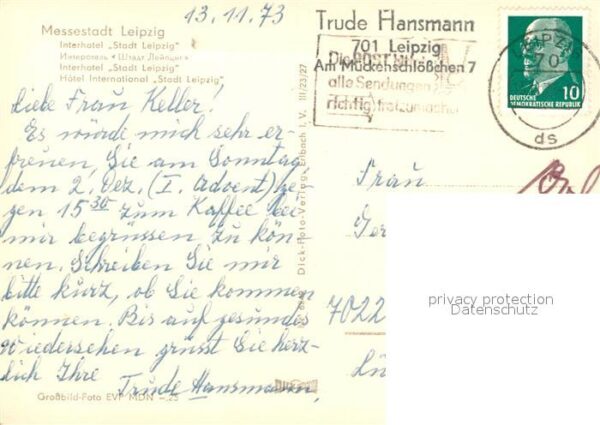 13.11.73
Messestadt Leipzig
Interhotel „Stadt Leipzig"
Интеротель «Штадт Лейпциг»
Interhotel „Stadt Leipzig"
Hôtel International „Stadt Leipzig"
Liebe Frau Keller!
Es würde mich sehr er-
freuen, Sie am Sonntag
dem 2. Dez. (I. Advent) ge-
gen 15³⁰ zum Kaffee bei
mir begrüssen zu kön-
nen. Schreiben Sie mir
bitte kurz, ob Sie kommen
können. Bis auf gesundes
Wiedersehen grüsst Sie herz-
lich Ihre
Trude Hansmann.
Großbild-Foto EVP MDN -,25
Dick-Foto-Verlag, Erlbach i. V. III/23/27
Trude Hansmann
701 Leipzig
Am Mückenschlößchen 7
Die POST
alle Sendungen
richtig freizumachen
LEIPZIG
70
ds
10
DEUTSCHE
DEMOKRATISCHE REPUBLIK
Frau
7022
privacy protection
Datenschutz